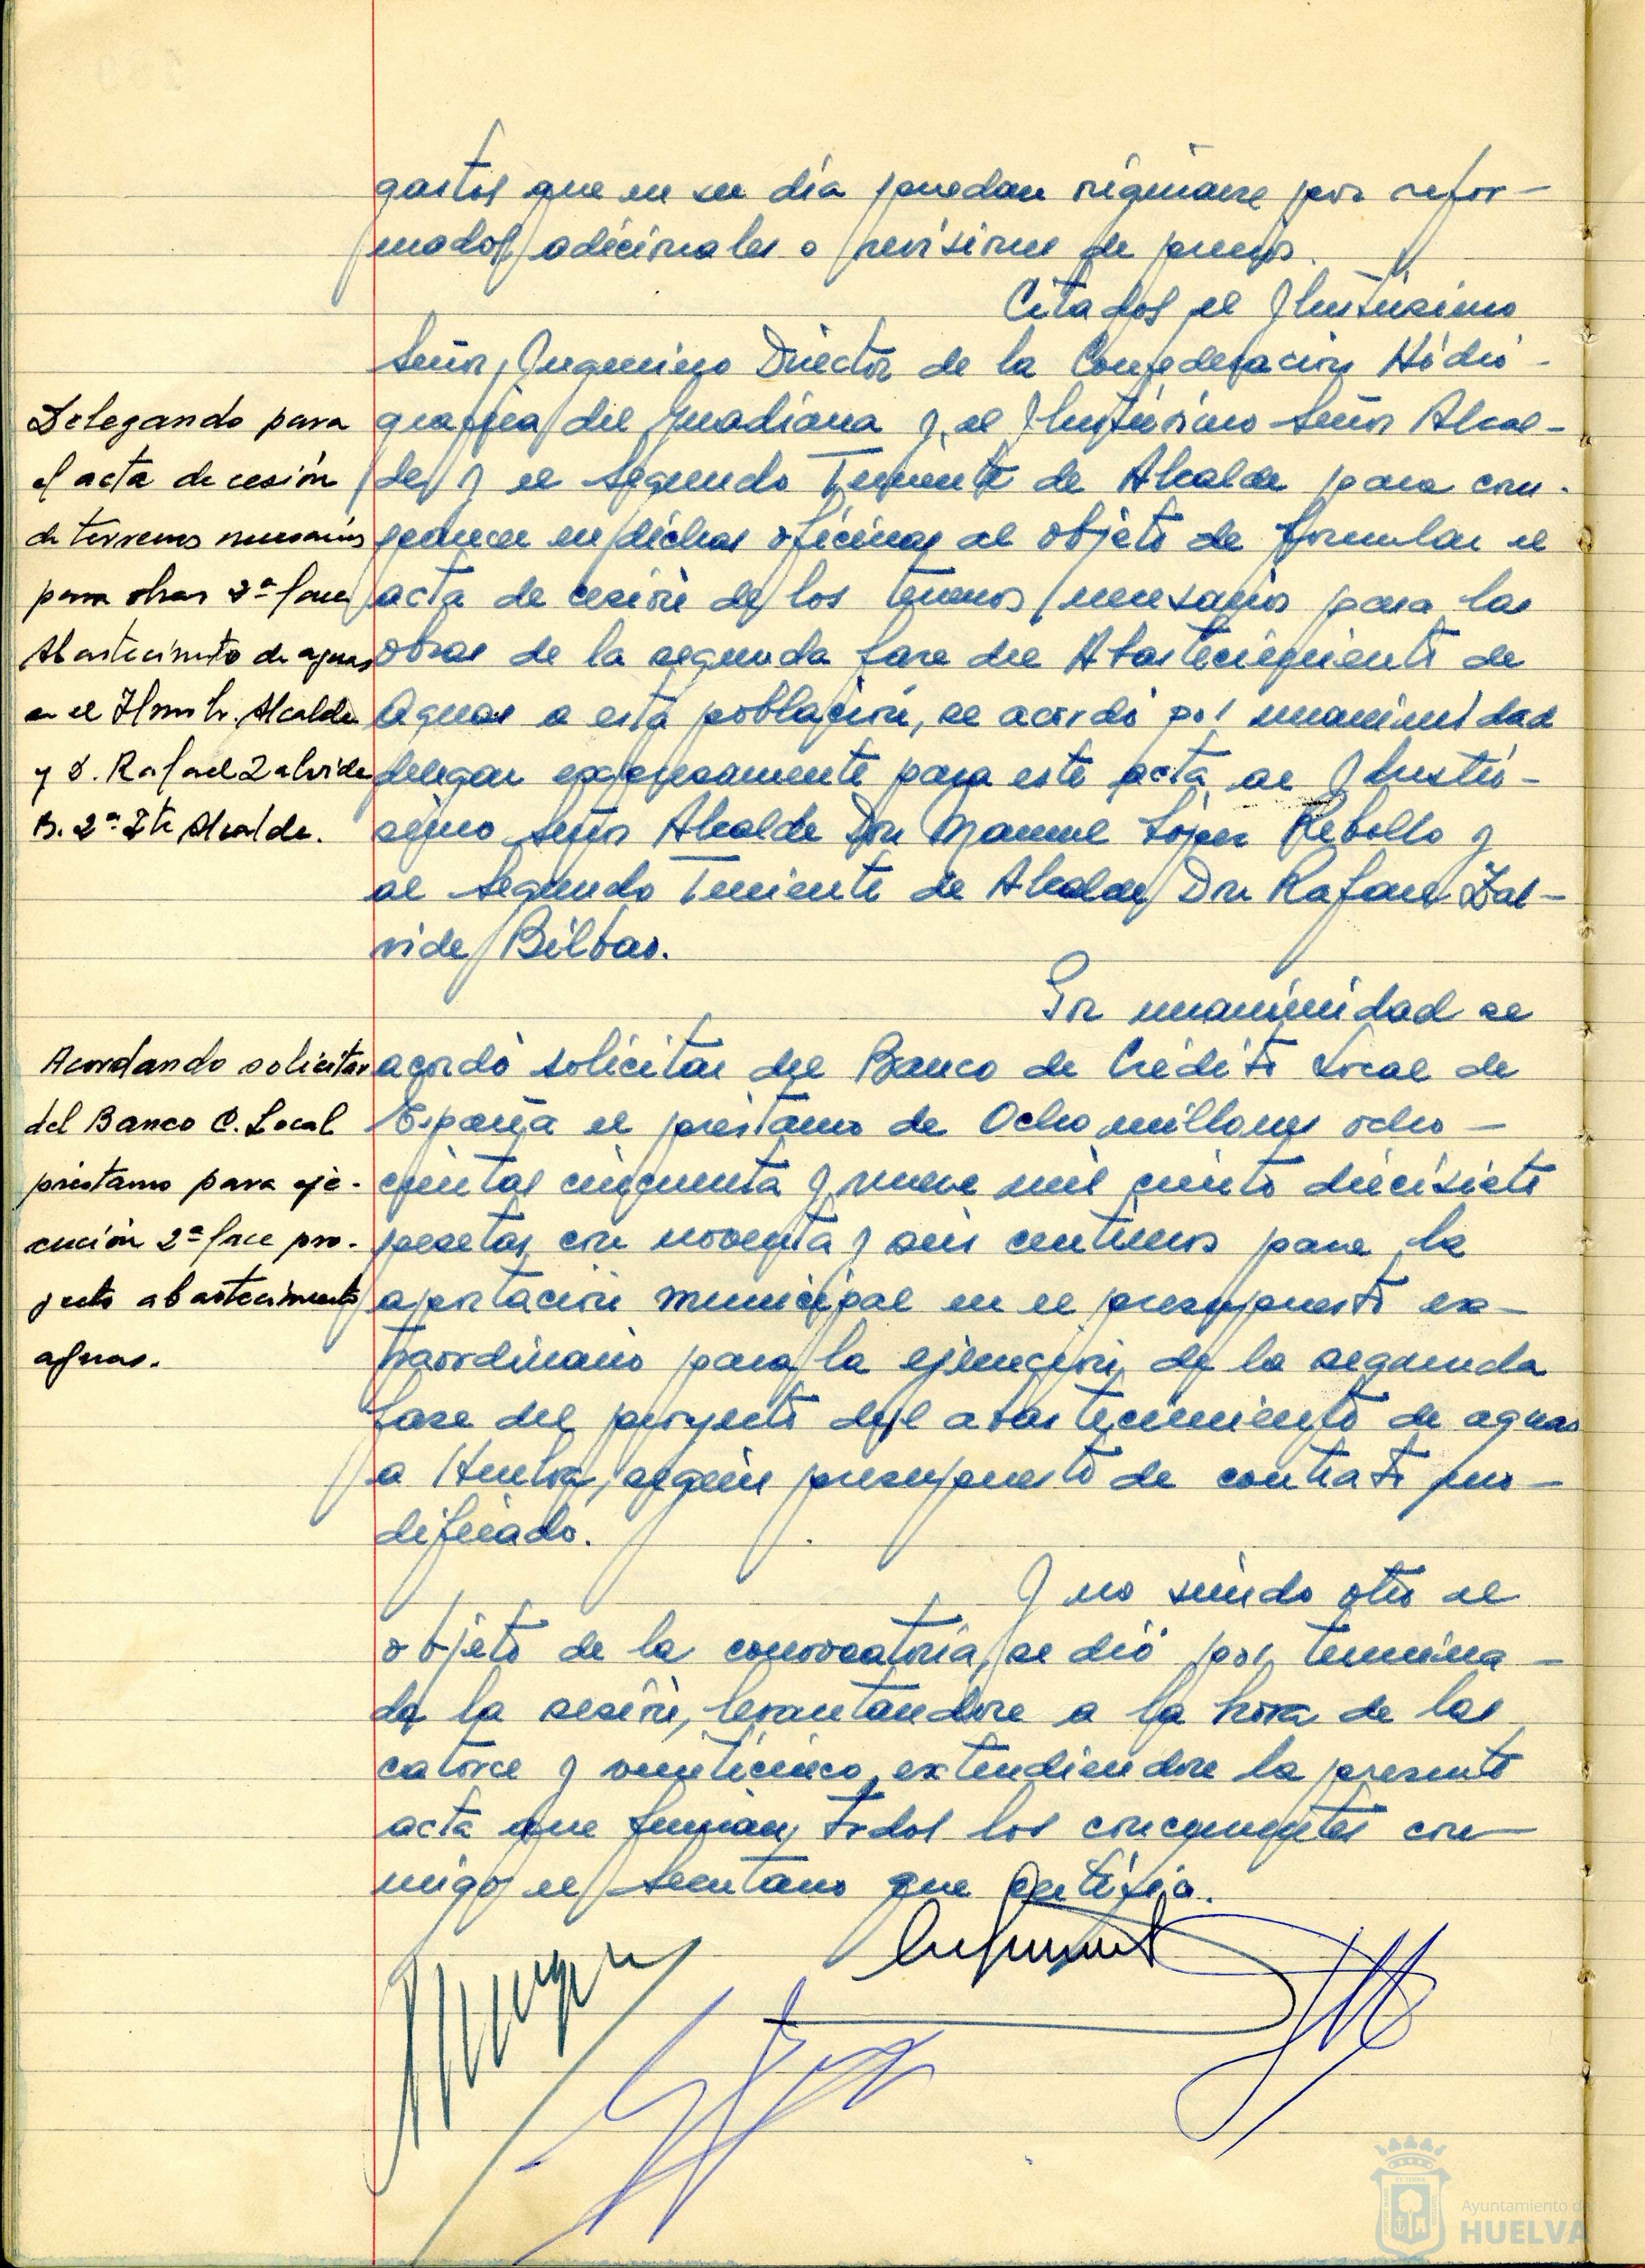 gastos que en su día puedan originarse por refor-
mados adicionales o revisiones de precios.
Citados el Ilustrísimo
Señor Ingeniero Director de la Confederación Hidro-
gráfica del Guadiana y el Ilustrísimo Señor Alcal-
de y el Segundo Teniente de Alcalde para com-
parecer en dichas oficinas al objeto de formular el
acta de cesión de los terrenos necesarios para las
obras de la segunda fase del Abastecimiento de
Aguas a esta población, se acordó por unanimidad
delegar expresamente para este acta al Ilustrí-
simo Señor Alcalde Don Manuel López Rebollo y
al Segundo Teniente de Alcalde Don Rafael Zal-
vide Bilbao.
Delegando para
el acta de cesión
de terrenos necesarios
para obras 2ª fase
Abastecimiento de aguas
en el Ilmo Sr. Alcalde
y D. Rafael Zalvide
B. 2º Tte Alcalde.
Por unanimidad se
acordó solicitar del Banco de Crédito Local de
España el préstamo de Ocho millones ocho-
cientas cincuenta y nueve mil ciento diecisiete
pesetas con noventa y seis centimos para la
aportación municipal en el presupuesto ex-
traordinario para la ejecución de la segunda
fase del proyecto del abastecimiento de aguas
a Huelva, según presupuesto de contrato mo-
dificado.
Acordando solicitar
del Banco C. Local
préstamo para eje-
cución 2ª fase pro-
yecto abastecimiento
aguas.
Y no siendo otro el
objeto de la convocatoria, se dió por termina-
da la sesión, levantandose a la hora de las
catorce y veinticinco, extendiendose la presente
acta que firman todos los concurrentes con-
migo el Secretario que certifico.
Ayuntamiento de
HUELVA